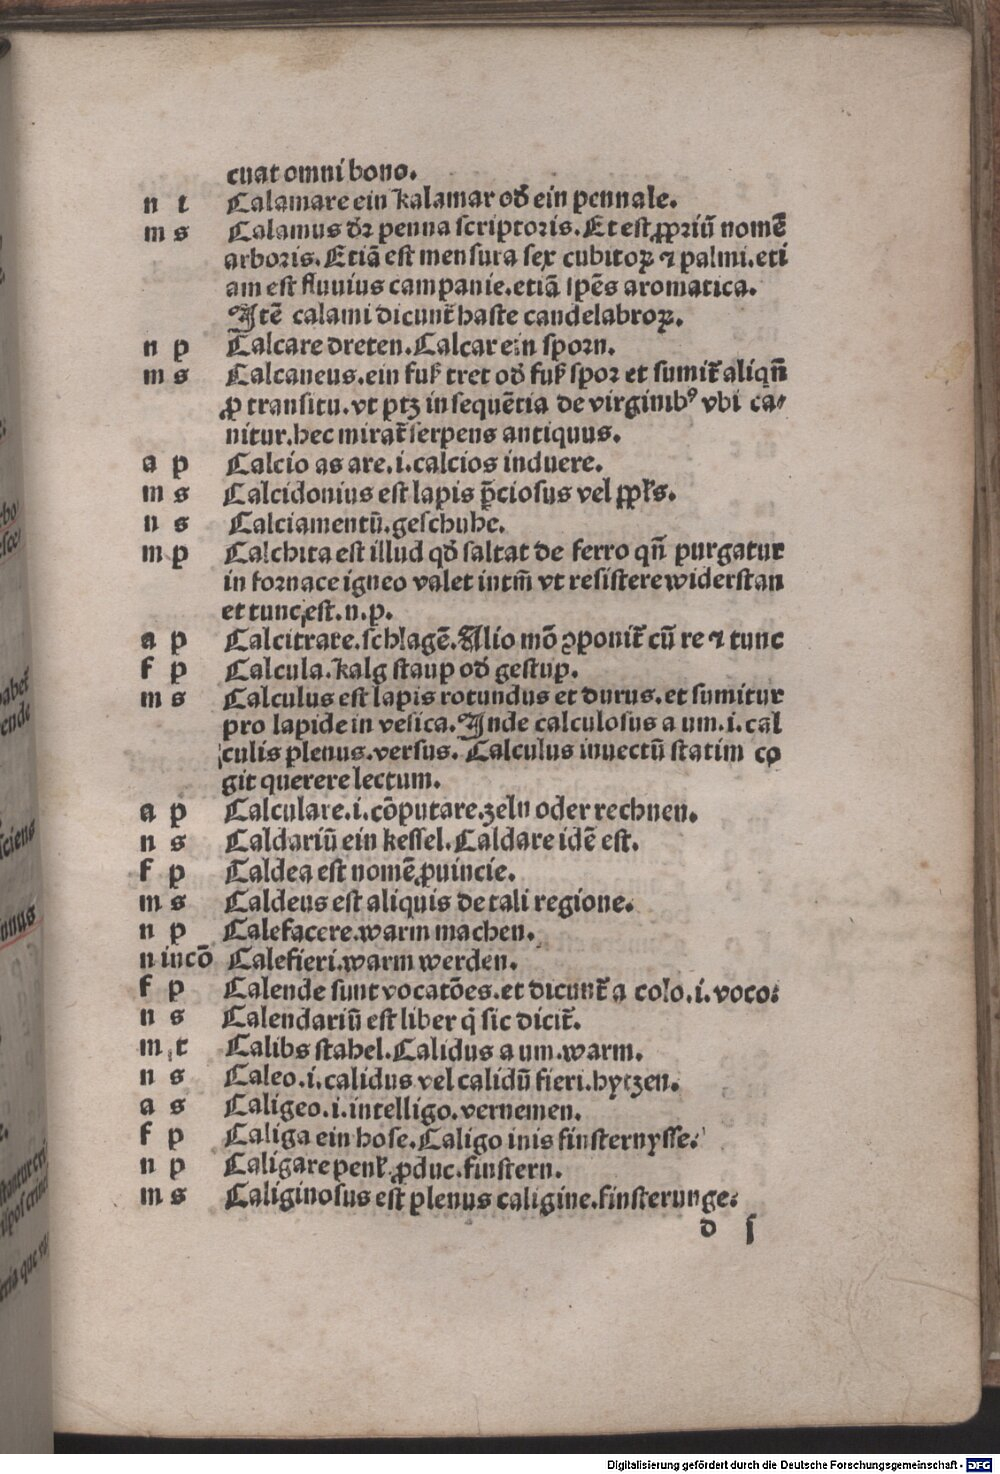 cuat omni bono.
n t Calamare ein kalamar od̄ ein pennale.
m s Calamus dr̄ penna scriptoris. Et est ꝓpriū nomē
arboris. Etiā est mensura sex cubitoꝝ ⁊ palmi. eti
am est fluuius campanie. etiā spēs aromatica.
Itē calami dicunt̄ haste candelabroꝝ.
n p Calcare dreten. Calcar ein sporn.
m s Calcaneus. ein fuß tret od̄ fuß spor et sumit̄ aliqn̄
ꝓ transitu. vt ptꝫ in sequētia de virginibꝰ vbi ca⸗
nitur. hec mirat̄ serpens antiquus.
a p Calcio as are. i. calcios induere.
m s Calcidonius est lapis p̄ciosus vel ꝓpr̄s.
n s Calciamentū. geschuhe.
m p Calchita est illud qd̄ saltat de ferro qn̄ purgatur
in fornace igneo valet intm̄ vt resistere widerstan
et tunc est. n. p.
a p Calcitrare. schlagē. Alio mō ꝯponit̄ cū re ⁊ tunc
f p Calcula. kalg staup od̄ gestup.
m s Calculus est lapis rotundus et durus. et sumitur
pro lapide in vesica. Inde calculosus a um. i. cal
culis plenus. versus. Calculus inuectū statim co
git querere lectum.
a p Calculare. i. cōputare. zeln oder rechnen.
n s Caldariū ein kessel. Caldare idē est.
f p Caldea est nomē ꝓuincie.
m s Caldeus est aliquis de tali regione.
n p Calefacere. warm machen.
n incō Calefieri. warm werden.
f p Calende sunt vocatōes. et dicunt̄ a colo. i. voco:
n s Calendariū est liber q̇ sic dicit̄.
m t Calibs stahel. Calidus a um. warm.
n s Caleo. i. calidus vel calidū fieri. hytzen.
a s Caligeo. i. intelligo. vernemen.
f p Caliga ein hose. Caligo inis finsternysse.
n p Caligare penl̄ ꝓduc. finstern.
m s Caliginosus est plenus caligine. finsterunge:
d ſ
Digitalisierung gefördert durch die Deutsche Forschungsgemeinschaft - DFG